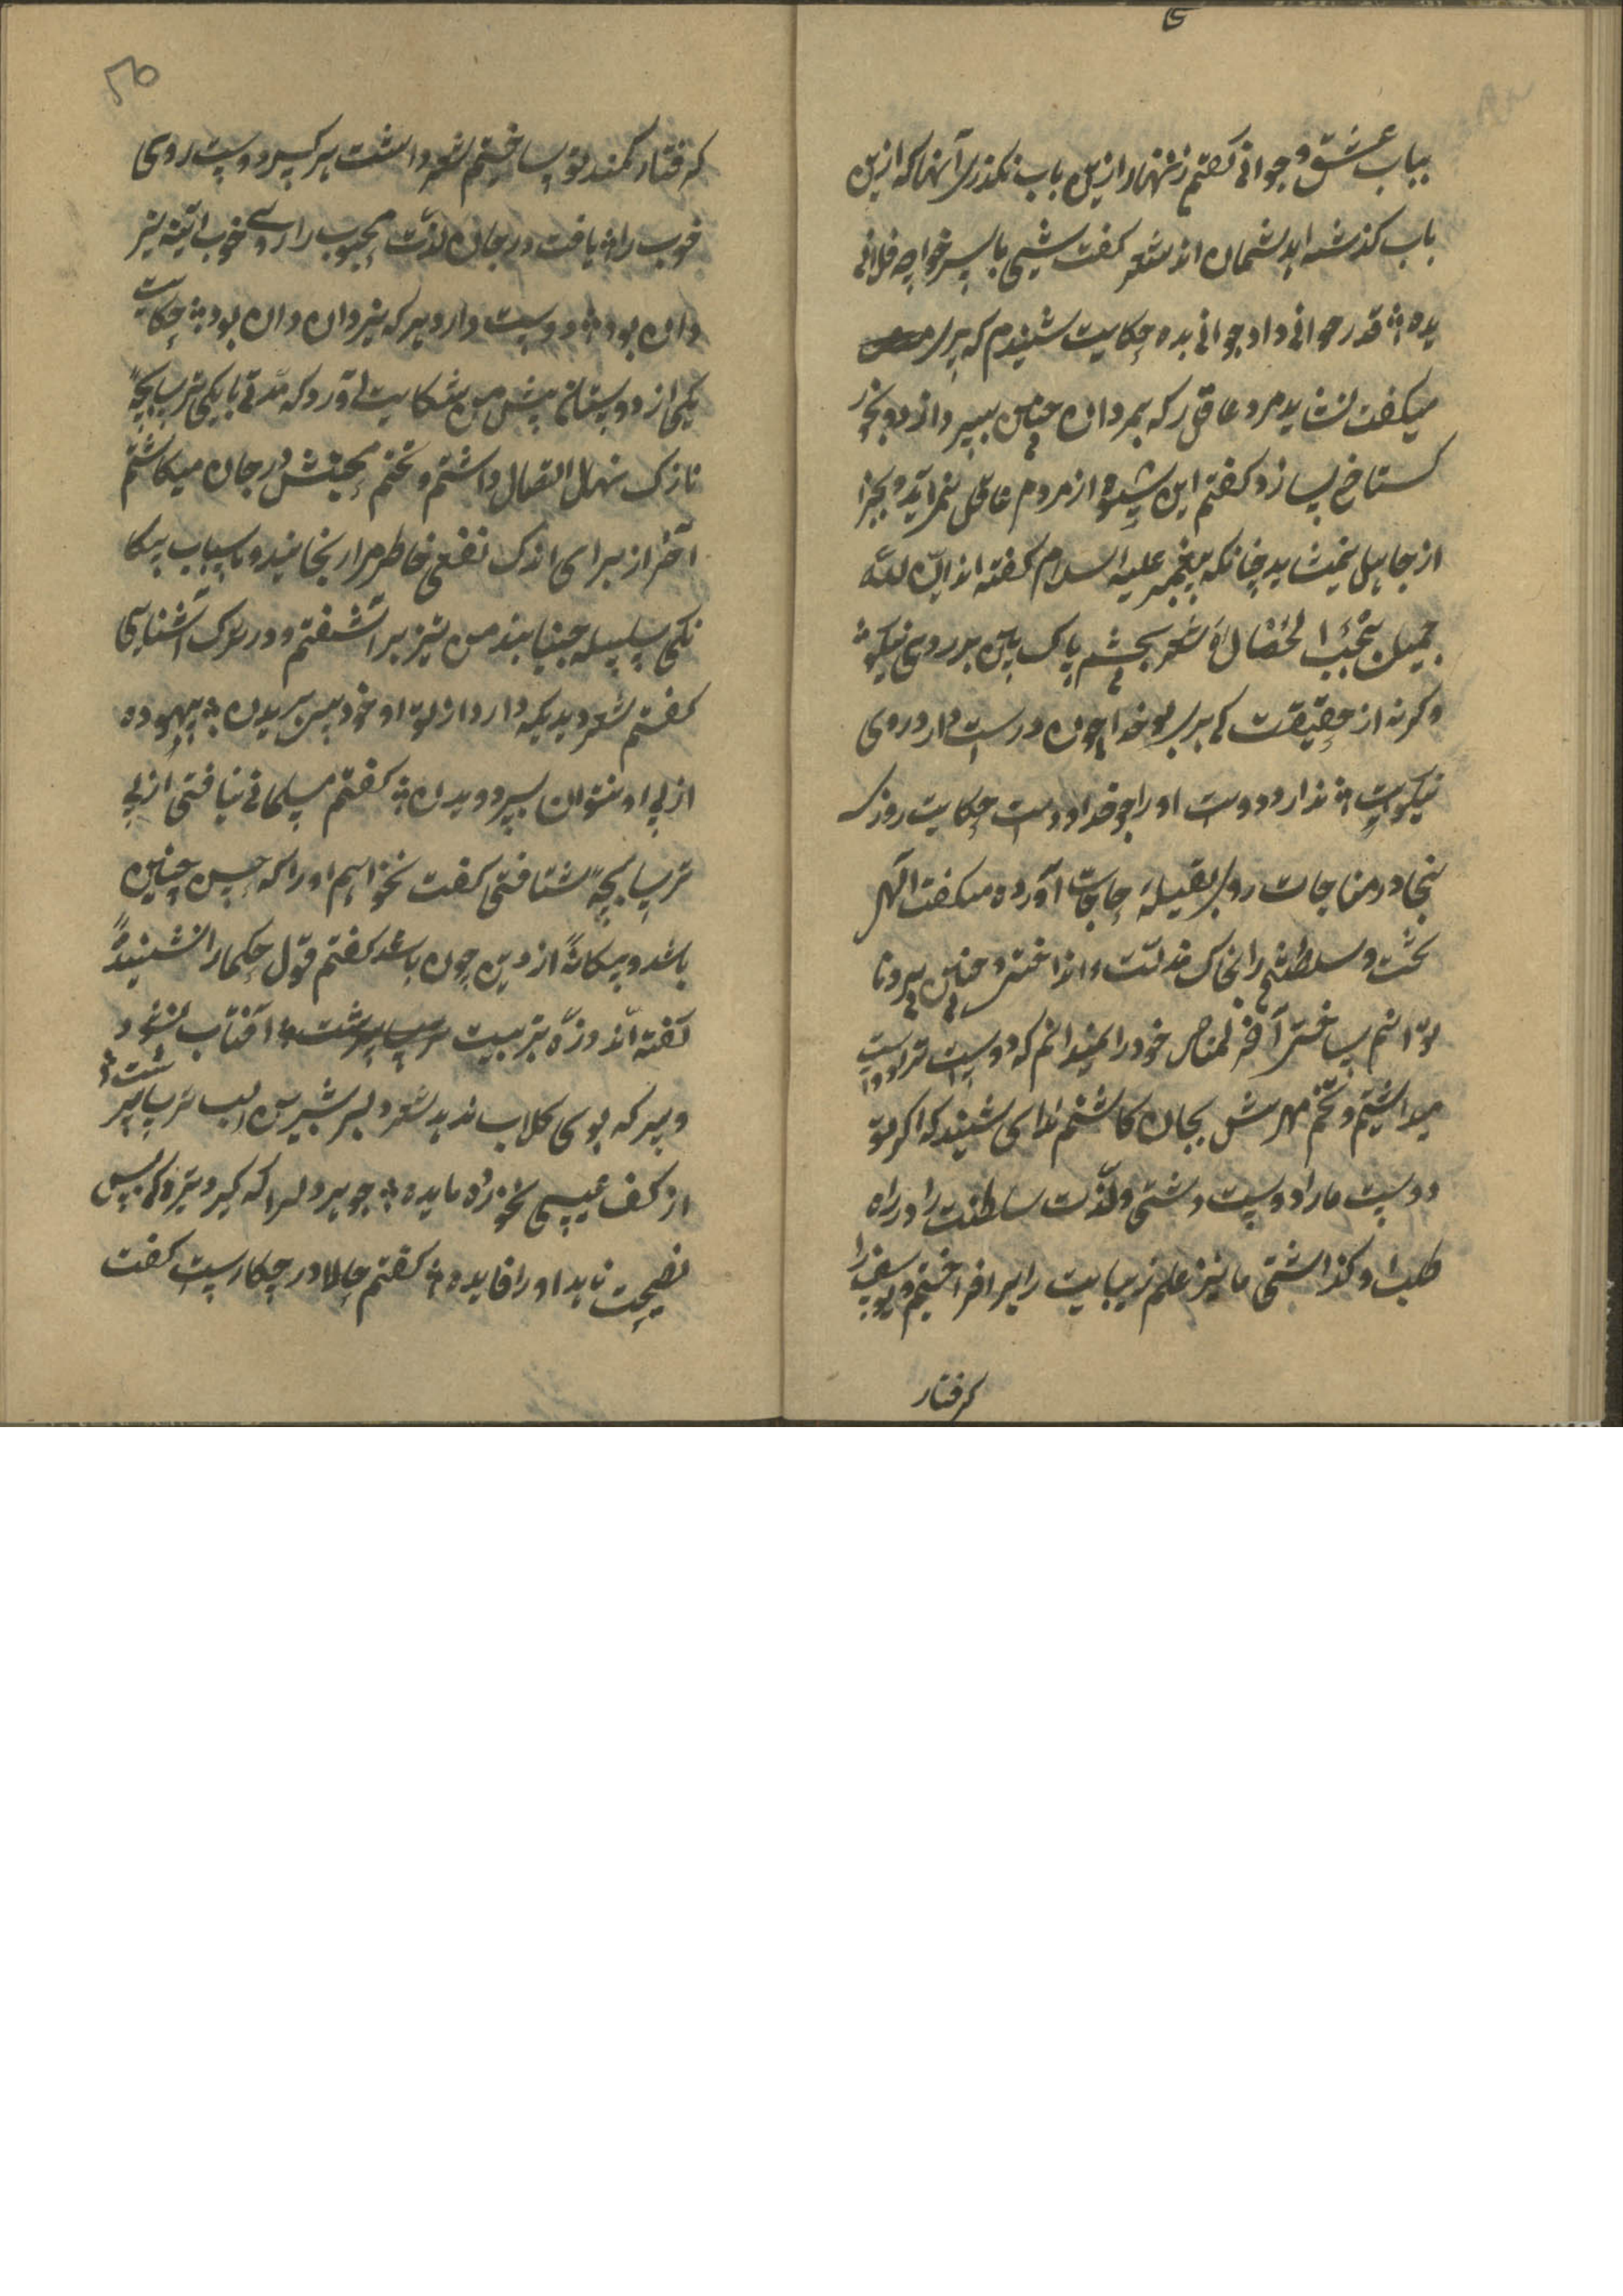 بباب عشق و جوانی گفتم زنهار ازین باب نگذری آنها که ازین
باب گذشته اند پشیمان اند شعر گفت شیخی با پسر خواجه فلانی
بده قدر جوانی داد جوانی بده حکایت شنیدم که پیری
میگفت نشاید مرد عاقل که بمردان چنین سپرد از ره
گستاخ پسازد گفتم این شیوه از مردم عاقل نمی آید و بجز
از جاهل نمیشاید چنانکه پیغمبر علیه السلام گفته اند ان الله
جمیل یحب الجمال شعر بچشم پاک بین بر روی نیکو
وگرنه از حقیقت کی بری بو خدا چون دوست دارد روی
نیکو ندارد دوست او را جز خدا دوست حکایت روزی
در مناجات روی بقبلهٔ حاجات آورده میگفت الهی
تخت و سلطنتم را بخاک مذلت انداختی و چنین بیرون
توانم ساختن آخر گناه خود را نمیدانم که دوست ترا دوست
میداشتم و تخم مهرش بجان کاشتم ندای شنید که اگر تو
دوست ما را دوست داشتی و لذت سلطنت را در راه
طلب او گذاشتی ما نیز علم زیبایت را برافراختیم و یوسف را
گرفتار
۵۶
که فتاد کمند تو ساختیم شعر داشت هر کس دوست روی
خوب را یافت در جان لذت محبوب را روی خوب آئینه یز
دان بود دوست دارد هر که یزدان دان بود حکایت
یکی از دوستان پیش من شکایت آورد که مدتی با یکی ترسابچهٔ
نازک نهال اتصال داشتم و تخم محبتش در جان میکاشتم
آخر از برای اندک نفعی خاطر مرا رنجانید و باسباب بیگا
نگی سلسله جنبانید من نیز برآشفتم و در ترک آشنایی
گفتم شعر دارد از تو او خود سر بریدن بیهوده
از پی او نتوان بسر دویدن گفتم مسلمانی نیافتی از پی
ترسابچهٔ شتافتی گفت نخواهم او را که حسن چنین
باشد و بیگانهٔ از دین چون باشد گفتم قول حکما را نشنیدهٔ
گفته اند ذره بتربیت آفتاب نشود
و هر که بوی گلاب ندهد شعر دلبر شیرین لب ترسا
از کف عیسی نخورد مایده جوهر دلرا که کبر و تیرگی بس
نصیحت ناید او را فایده گفتم حالا در چکارست گفت